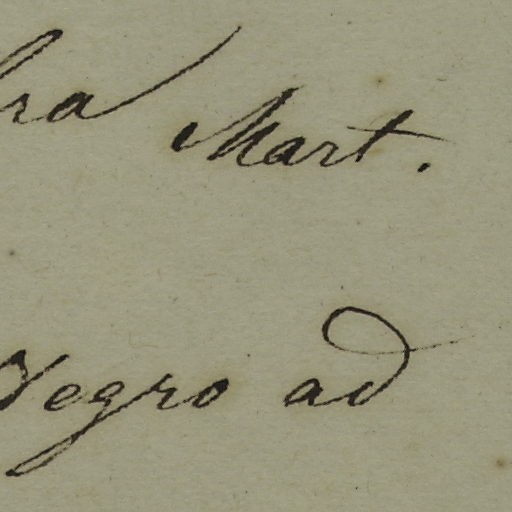 Mart.
Negro ad